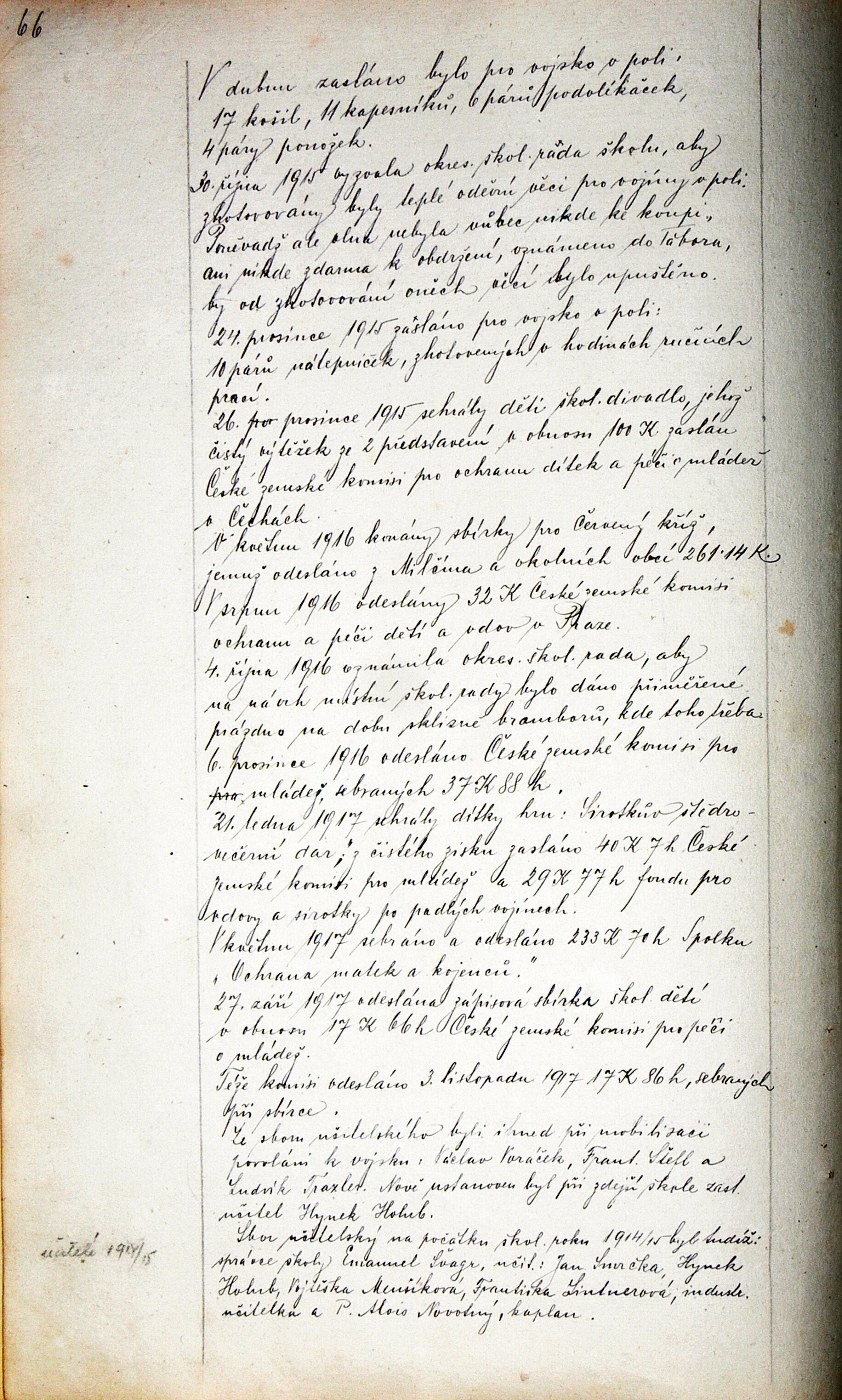 66
V dubnu zasláno bylo pro vojsko v poli:
17 košil, 11 kapesníků, 6 párů podolíkáček,
4 páry ponožek.
30. října 1915 vyzvala okres. škol. rada školu, aby
zhotovovány byly teplé oděvní věci pro vojíny v poli.
Poněvadž ale vlna nebyla vůbec nikde ke koupi,
ani nikde zdarma k obdržení, oznámeno do Tábora,
by od zhotovování oněch věcí bylo upuštěno.
24. prosince 1915 zasláno pro vojsko v poli:
10 párů nátepniček, zhotovených v hodinách ručních
prací.
26. pro prosince 1915 sehrály děti škol. divadlo, jehož
čistý výtěžek ze 2 představení v obnosu 100 K zaslán
České zemské komisi pro ochranu dítek a péči o mládež
v Čechách.
V květnu 1916 konány sbírky pro Červený kříž,
jemuž odesláno z Milčína a okolních obcí 261·14 K.
V srpnu 1916 odeslány 32 K České zemské komisi
ochranu a péči dětí a vdov v Praze.
4. října 1916 oznámila okres. škol. rada, aby
na návrh místní škol. rady bylo dáno přiměřené
prázdno na dobu sklizně bramborů, kde toho třeba.
6. prosince 1916 odesláno České zemské komisi pro
pro mládež, sebraných 37 K 88 h.
21. ledna 1917 sehrály dítky hru: Sirotkův štědro-
večerní dar;" z čistého zisku zasláno 40 K 7 h České
zemské komisi pro mládež a 29 K 77 h fondu pro
vdovy a sirotky po padlých vojínech.
V květnu 1917 sebráno a odesláno 233 K 70 h Spolku
„Ochrana matek a kojenců."
27. září 1917 odeslána zápisová sbírka škol. dětí
v obnosu 17 K 66 h České zemské komisi pro péči
o mládež.
Téže komisi odesláno 3. listopadu 1917 17 K 86 h, sebraných
při sbírce.
Ze sboru učitelského byli ihned při mobilisaci
povoláni k vojsku: Václav Voráček, Frant. Štefl a
Ludvík Traxler. Nově ustanoven byl při zdejší škole zast.
učitel Hynek Holub.
Sbor učitelský na počátku škol. roku 1914/15 byl tudíž:
správce školy Emanuel Švagr, učit.: Jan Smrčka, Hynek
Holub, Vojtěška Menšíková, Františka Lintnerová, industr.
učitelka a P. Alois Novotný, kaplan.
učitelé 1914/15